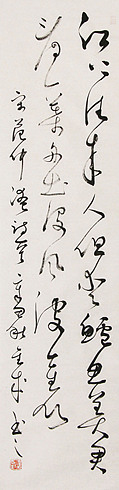 江上往來人但愛鱸魚美君
看一葉舟出没風波裏
宋范仲淹詩 秋 書